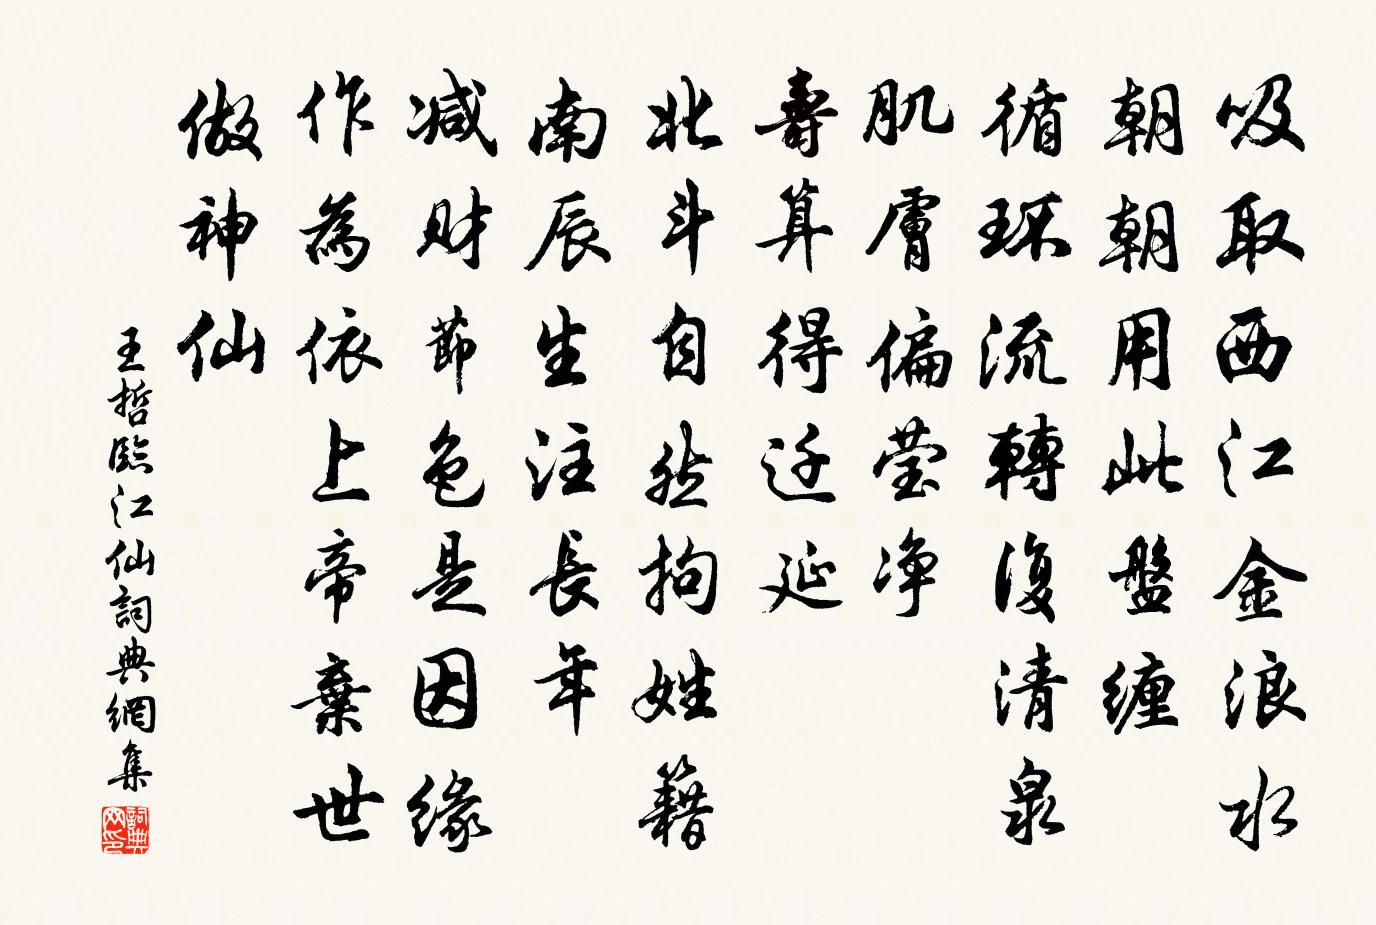 吸取西江金浪水
朝朝用此盤缠
循环流轉復清泉
肌膚偏莹净
壽算得迁延
北斗自然拘姓籍
南辰生注長年
减财節色是因缘
作為依上帝棄世
做神仙
王哲臨江仙詞典網集
詞典
网印